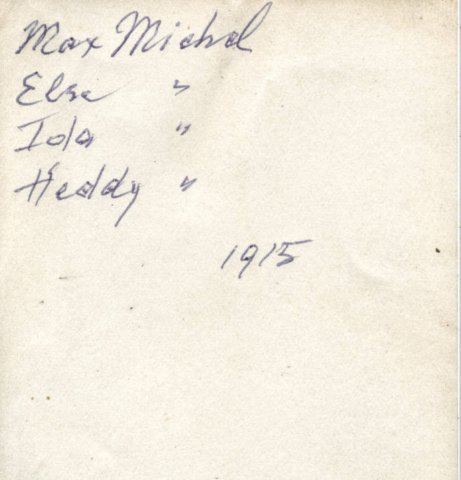 Max Michel
Else "
Ida "
Heddy "
1915